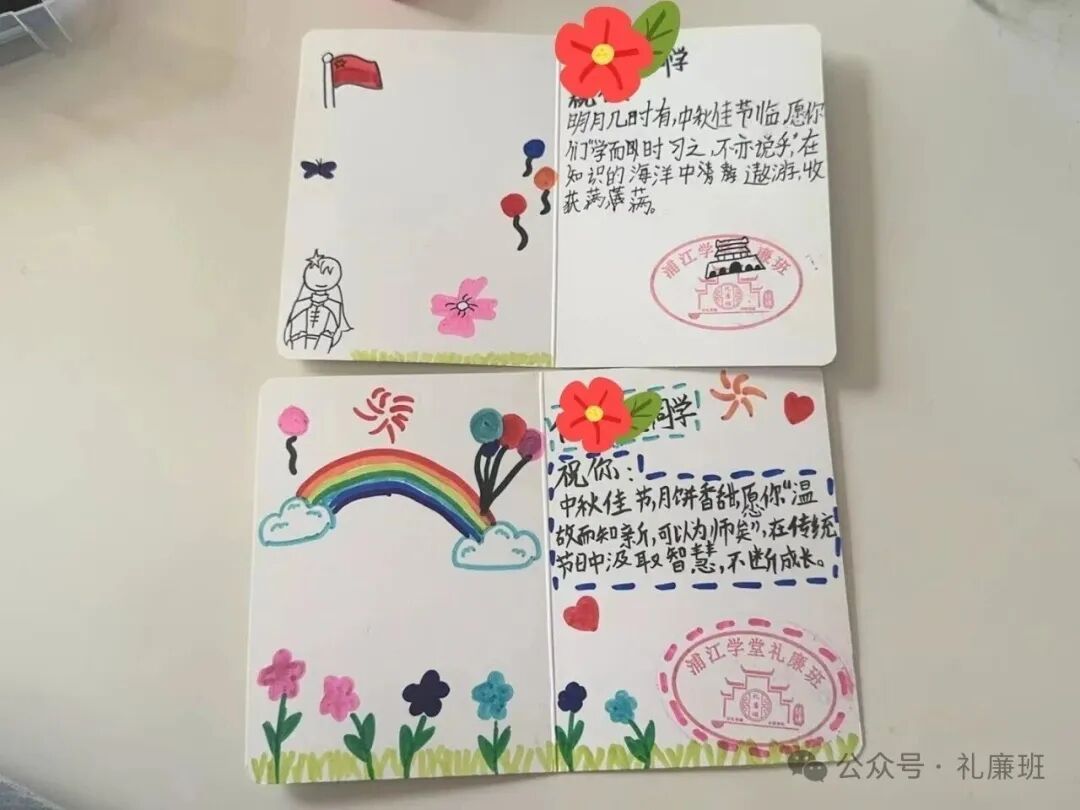 学
祝
明月几时有,中秋佳节临,愿你
们“学而时习之,不亦说乎”,在
知识的海洋中遨游,收
获满满。
浦江学 廉班
同学
祝你:
中秋佳节,月饼香甜,愿你“温
故而知新,可以为师矣”,在传统
节日中汲取智慧,不断成长。
浦江学堂礼廉班
公众号·礼廉班